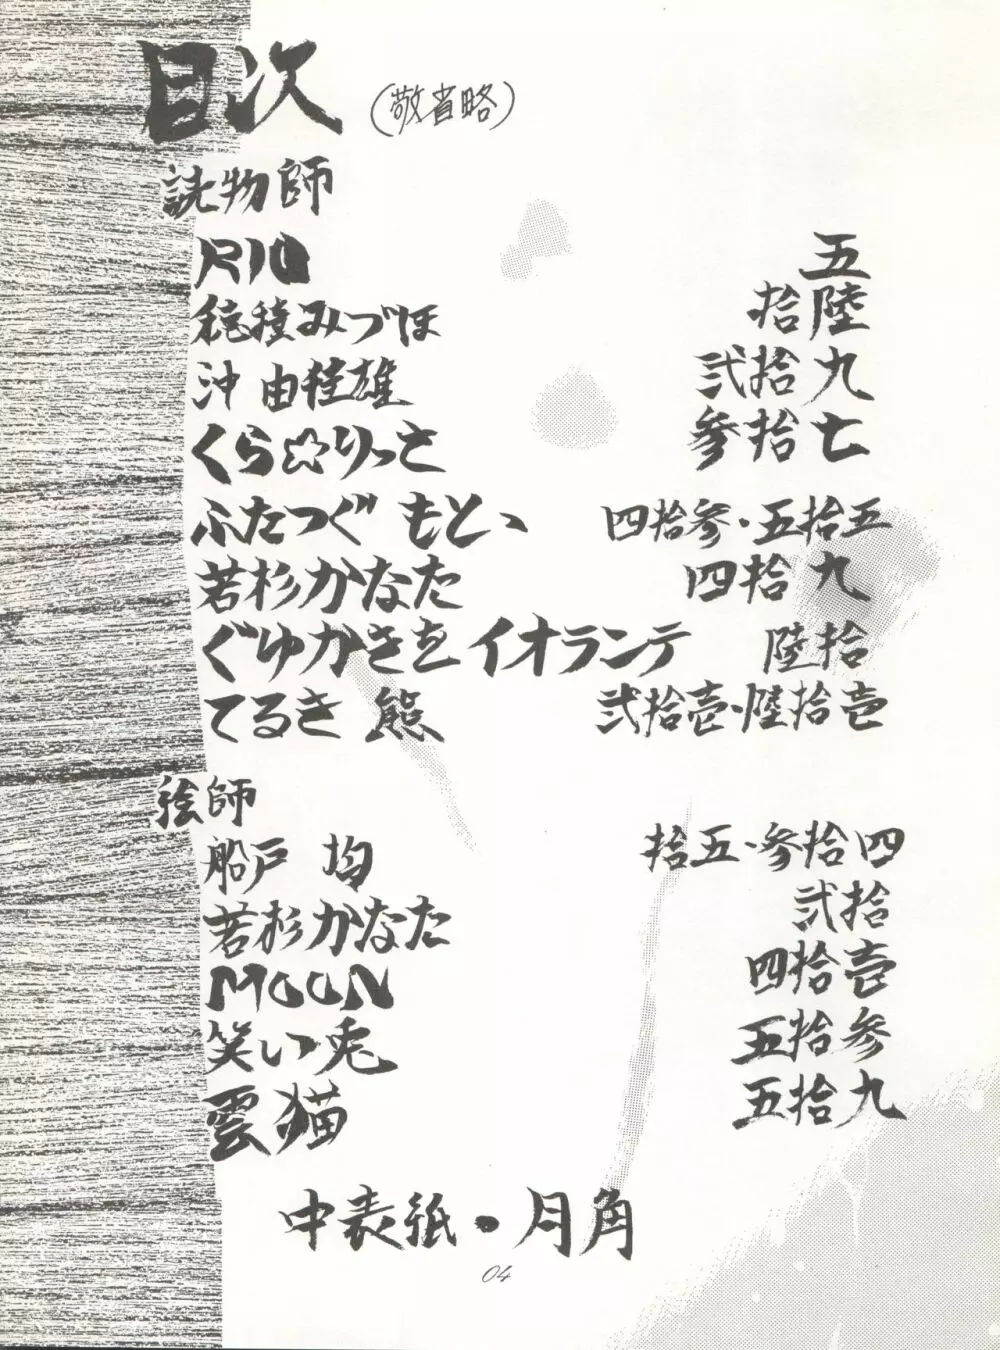 目次 (敬省略)
読物師
RIO 五
穂積みづほ 拾陸
沖 由桂雄 弐拾九
くら☆りっさ 参拾七
ふたつぐ もとゝ 四拾参・五拾五
若杉かなた 四拾九
ぐゆかきを イオランテ 陸拾
てるき 熊 弐拾壱・陸拾壱
絵師
船戸 均 拾五・参拾四
若杉かなた 弐拾
MOON 四拾壱
笑い兎 五拾参
雲猫 五拾九
中表紙・月角
04